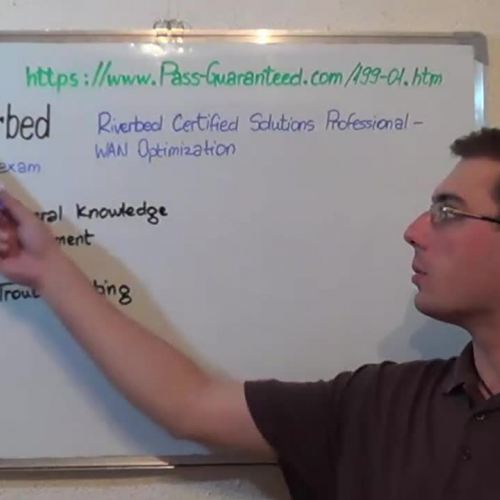 https://www.Pass-Guaranteed.com/199-01.htm
rbed Riverbed Certified Solutions Professional -
WAN Optimization
exam
ral Knowledge
ment
Trou bing